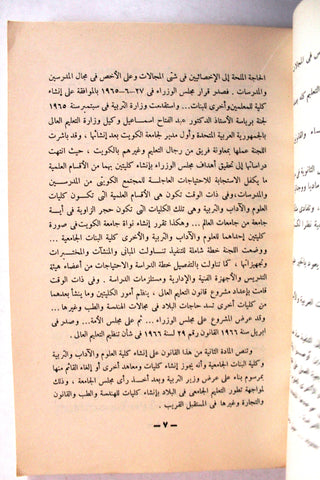 الحاجة الملحة إلى الإخصائيين في شتى المجالات وعلى الأخص في مجال المدرسين
والمدرسات . فصدر قرار مجلس الوزراء في ٢٧-٦-١٩٦٥ بالموافقة على إنشاء
كلية للمعلمين وأخرى للبنات... واستقامت وزارة التربية في سبتمبر سنة ١٩٦٥
لجنة برئاسة الأستاذ الدكتور عبد الفتاح اسماعيل وكيل وزارة التعليم العالى
بالجمهورية العربية المتحدة وأول مدير لجامعة الكويت بعد إنشائها . وقد باشرت
اللجنة عملها بمعاونة فريق من رجال التعليم وغيرهم بالكويت ، حيث انتهت
دراساتها إلى تحقيق أهداف مجلس الوزراء بإنشاء كليتين بهما من الأقسام العلمية
ما يكفل الاستجابة للاحتياجات العاجلة للمجتمع الكويتى من المدرسين
والمدرسات ، وفى ذات الوقت تكون هى الأقسام العلمية التى تضمها كليات
العلوم والآداب والتربية وهى تلك الكليات التى تكون حجر الزاوية في أية
جامعة من جامعات العالم ... وهكذا تقرر إنشاء نواة جامعة الكويت في صورة
كليتين إحداهما للعلوم والآداب والتربية والأخرى كلية البنات الجامعية ..
ووضعت اللجنة خطة شاملة للتنفيذ تتناول المبانى والمنشآت والمختبرات
وتجهيزاتها ، كما تناولت بالتفصيل خطة الدراسة والاحتياجات من أعضاء هيئة
التدريس والأجهزة الفنية والإدارية ومستلزمات الدراسة . وفى ذات الوقت
قامت بإعداد مشروع قانون التعليم العالى ، ينظم أمور الكليتين وما ينشأ بعدهما
من كليات أخرى تسد حاجات البلاد فى مجالات الهندسة والطب والقانون
وغيرها . وقد عرض المشروع على مجلس الوزراء ... ثم على مجلس الأمة .. وصدر فى
ابريل سنة ١٩٦٦ القانون رقم ٢٩ لسنة ١٩٦٦ فى شأن تنظيم التعليم العالى .
وتنص المادة الثانية من هذا القانون على إنشاء كلية العلوم والآداب والتربية
وكلية البنات الجامعية وأنه يجوز إنشاء كليات ومعاهد أخرى أو إلغاء القائم منها
بمرسوم بناء على عرض وزير التربية وبعد أخذ رأى مجلس الجامعة ، وذلك
لمواجهة تطور التعليم الجامعى فى البلاد بإنشاء كليات للهندسة والطب والقانون
والتجارة وغيرها فى المستقبل القريب .
— ٧ —